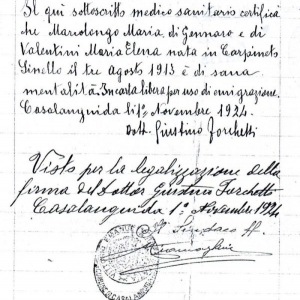 Il quì sottoscritto medico sanitario certifica
che Marcolongo Maria, di Gennaro e di
Valentini Maria Elena nata in Carpineto
Sinello il tre Agosto 1913 è di sana
mentalità. In carta libera per uso di emigrazione.
Casalanguida li 1º Novembre 1924.
Dott. Giustino Forchetti
Visto per la legalizzazione della
firma del Dottor Giustino Forchetti
Casalanguida 1º Novembre 1924
Il Sindaco